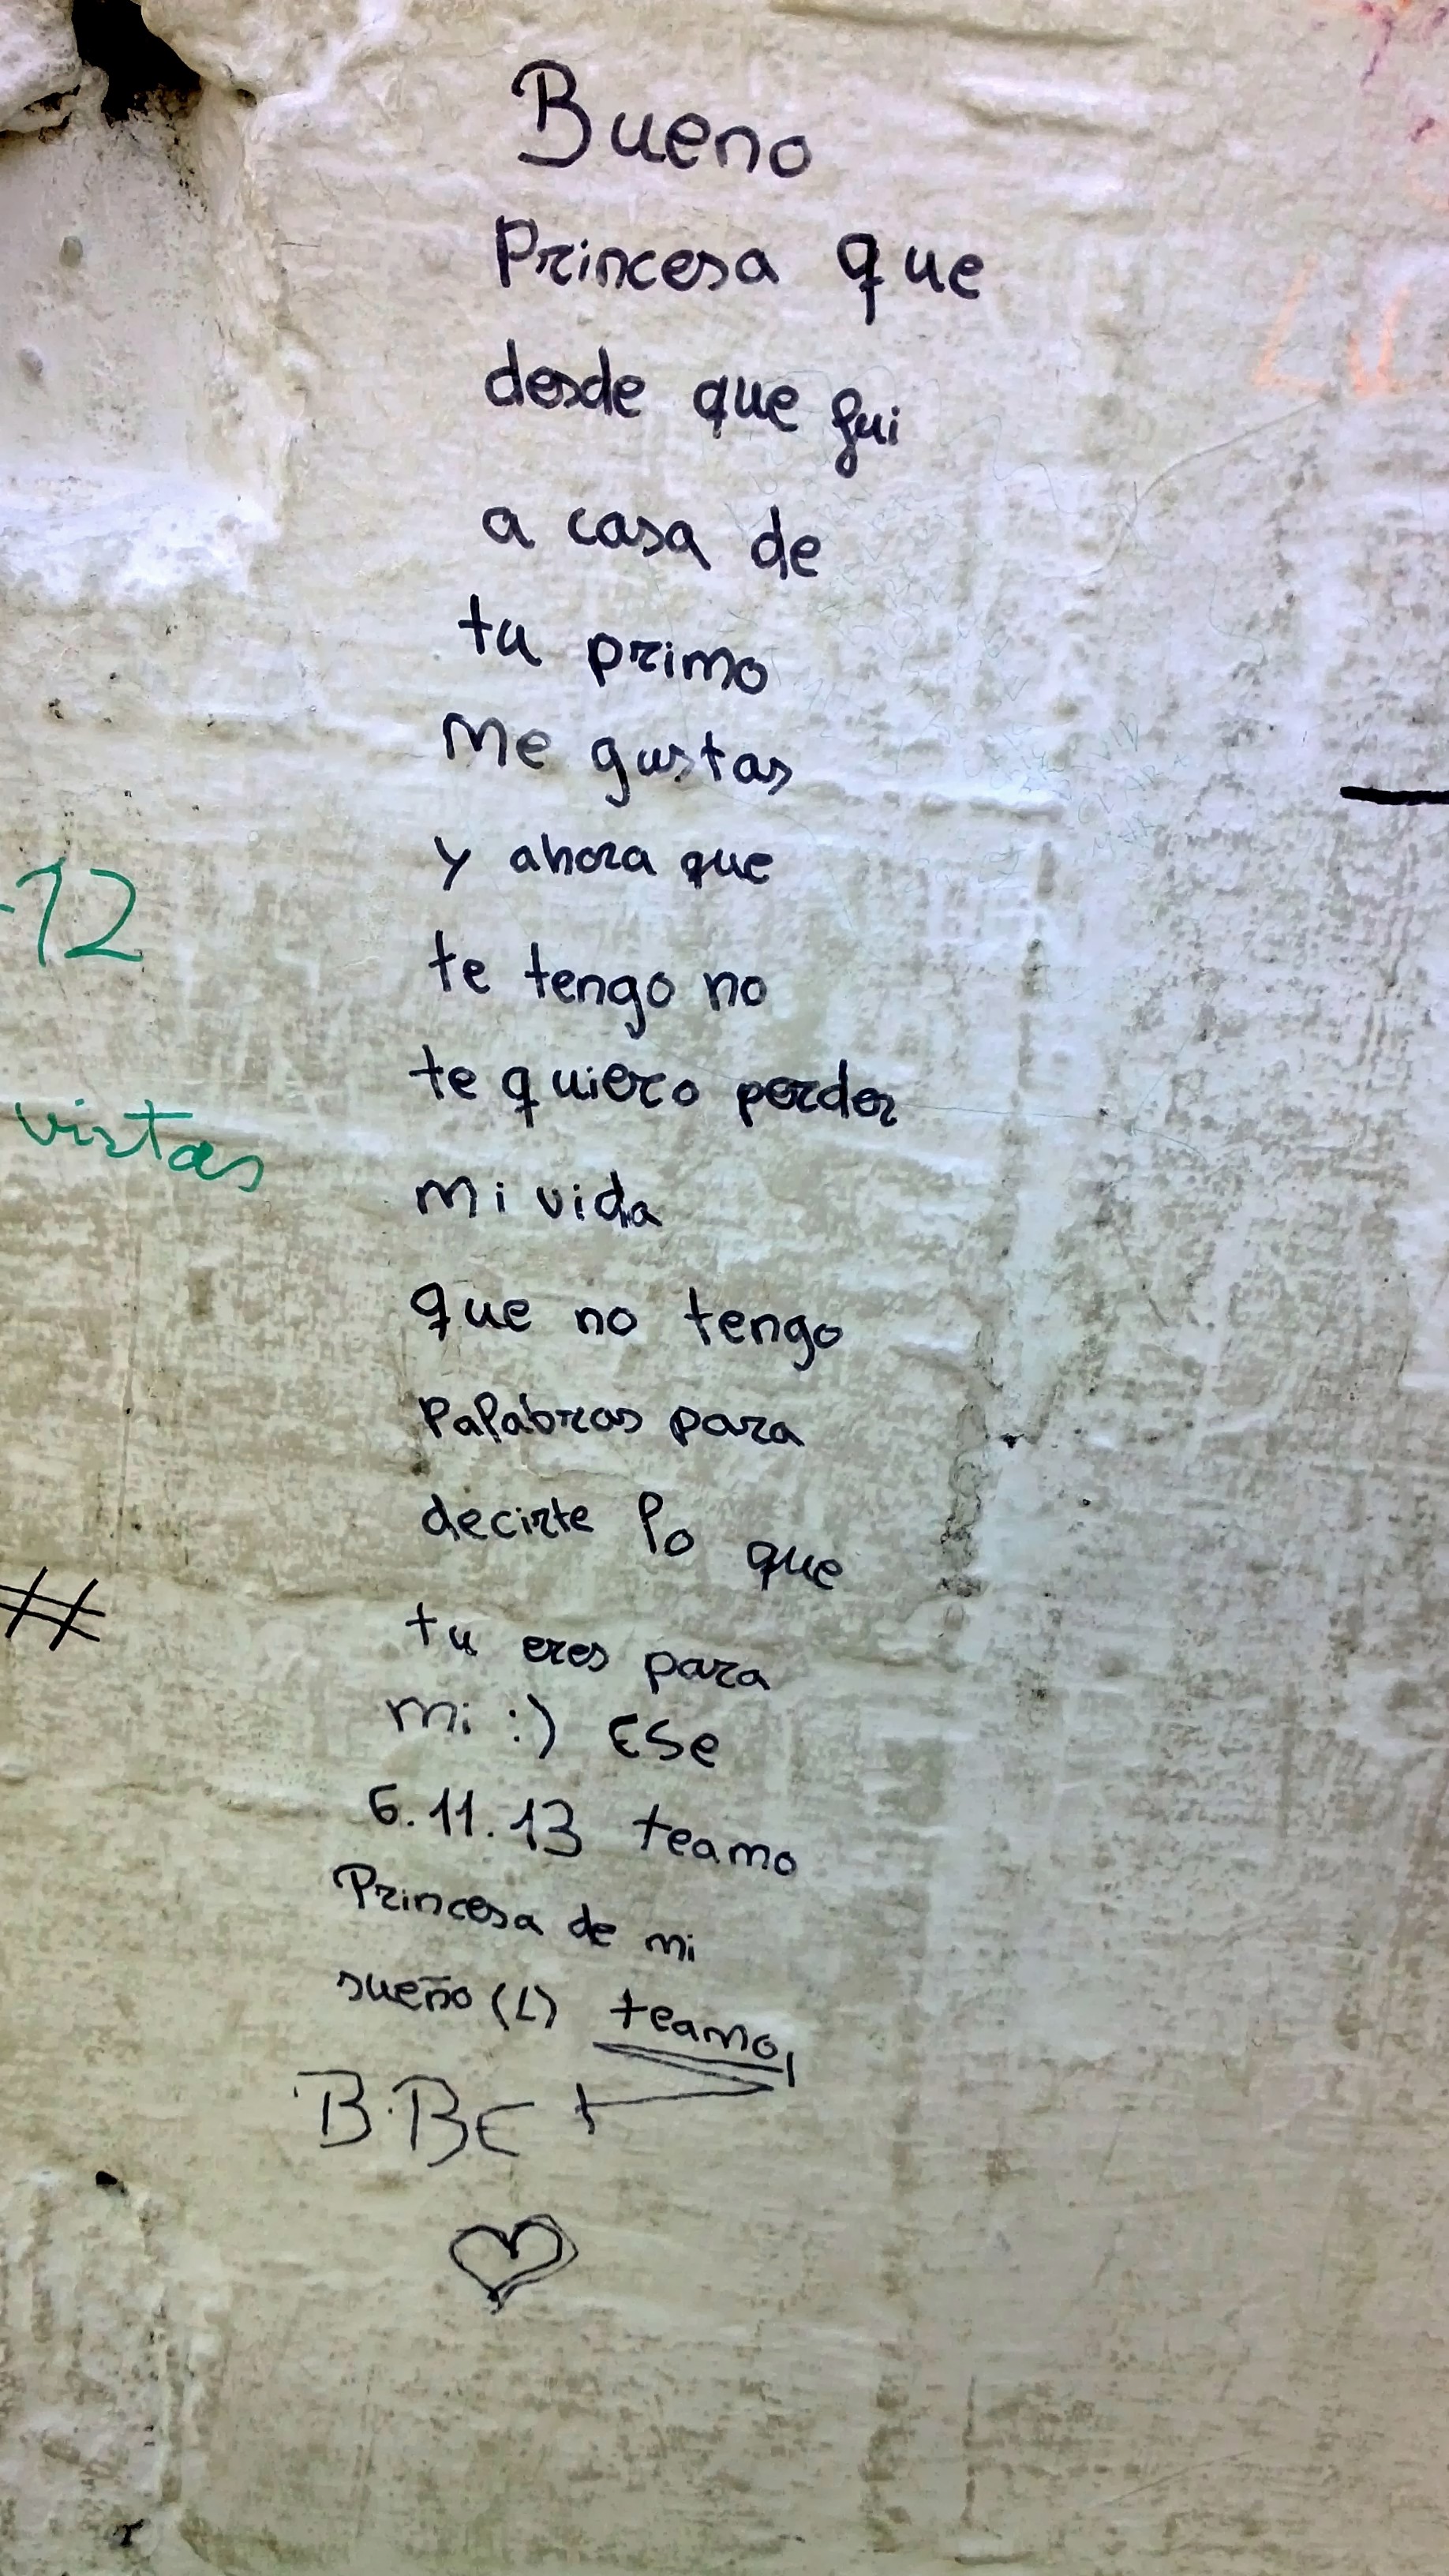 Bueno
Princesa que
desde que fui
a casa de
tu primo
Me gustas
y ahora que
te tengo no
te quiero perder
mi vida
que no tengo
Palabras para
decirte lo que
tu eres para
mi :) ESe
6.11.13 teamo
Princesa de mi
sueño (L) teamo
B.BE
-12
vistas
#